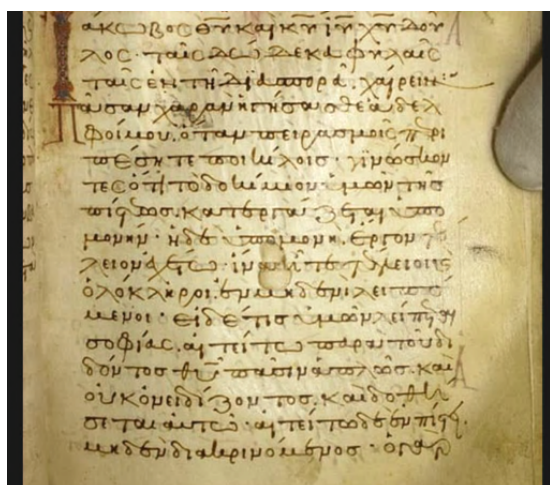 Ἰάκωβος θῦ καὶ κῦ ἰῦ χῦ δοῦ
λος· ταῖς δώδεκα φυλαῖς
ταῖς ἐν τῇ διασπορᾷ. χαίρειν·
πᾶσαν χαρὰν ἡγήσασθε ἀδελ
φοί μου. ὅταν πειρασμοῖς περι
πέσητε ποικίλοις· γινώσκον
τες ὅτι τὸ δοκίμιον ὑμῶν τῆς
πίστεως. κατεργάζεται ὑπο
μονήν· ἡ δὲ ὑπομονὴ. ἔργον τέ
λειον ἐχέτω· ἵνα ἦτε τέλειοι καὶ
ὁλόκληροι. ἐν μηδενὶ λειπό
μενοι· εἰ δέ τις ὑμῶν λείπεται
σοφίας. αἰτείτω παρὰ τοῦ δι
δόντος θῦ πᾶσιν ἁπλῶς. καὶ
οὐκ ὀνειδίζοντος. καὶ δοθή
σεται αὐτῷ· αἰτείτω δὲ ἐν πίστει.
μηδὲν διακρινόμενος· ὁ γὰρ